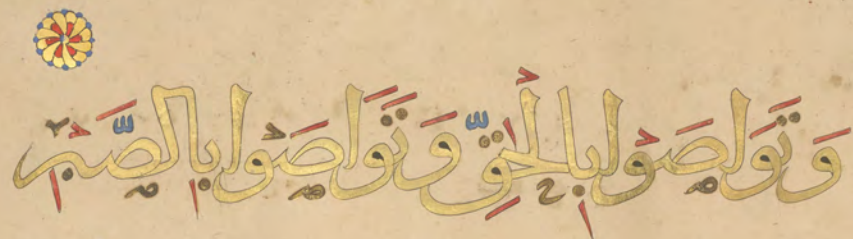 وَتَوَاصَوْا بِالْحَقِّ وَتَوَاصَوْا بِالصَّبْرِ